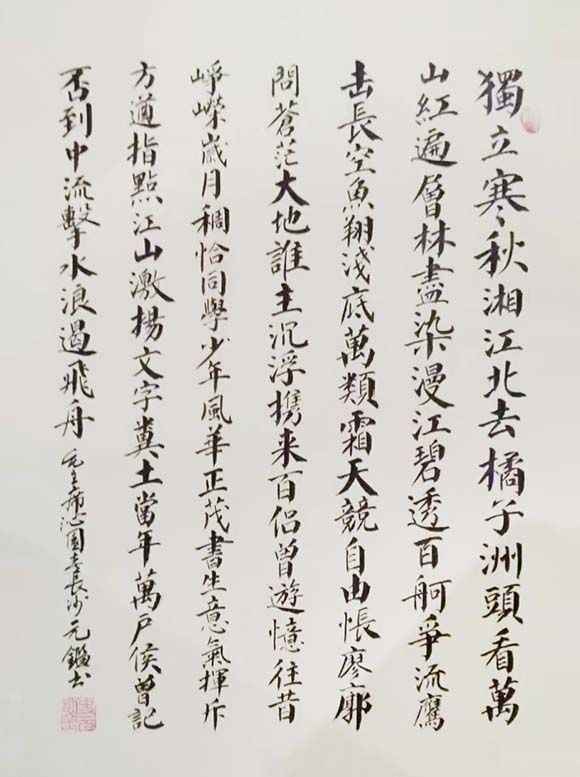 獨立寒秋湘江北去橘子洲頭看萬
山紅遍層林盡染漫江碧透百舸爭流鷹
击長空魚翔淺底萬類霜天競自由悵廖廓
問蒼茫大地誰主沉浮携来百侣曾遊憶往昔
崢嶸歲月稠恰同學少年風華正茂書生意氣揮斥
方遒指點江山激揚文字糞土當年萬户侯曾記
否到中流擊水浪遏飛舟
毛主席沁園春長沙元鑑书